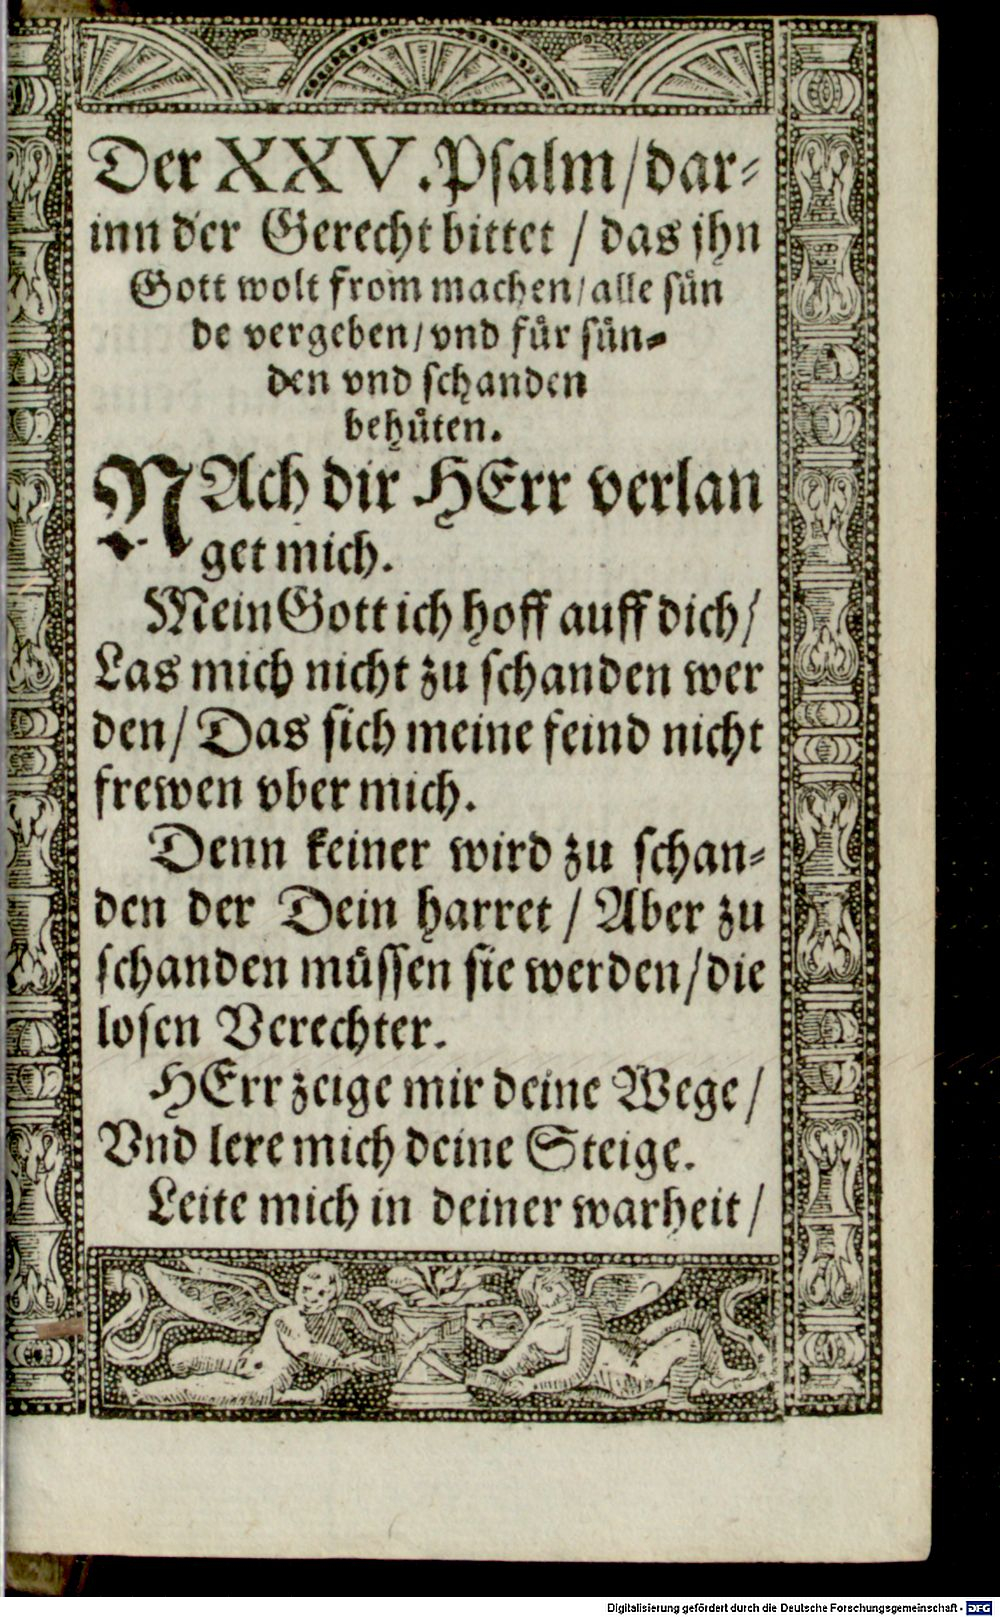 Der XXV. Psalm/dar⸗
inn der Gerecht bittet / das jhn
Gott wolt from machen/alle sün
de vergeben/vnd für sün⸗
den vnd schanden
behüten.
NAch dir HErr verlan
get mich.
Mein Gott ich hoff auff dich/
Las mich nicht zu schanden wer
den/ Das sich meine feind nicht
frewen vber mich.
Denn keiner wird zu schan⸗
den der Dein harret / Aber zu
schanden müssen sie werden/die
losen Verechter.
HErr zeige mir deine Wege/
Vnd lere mich deine Steige.
Leite mich in deiner warheit/
Digitalisierung gefördert durch die Deutsche Forschungsgemeinschaft - DFG